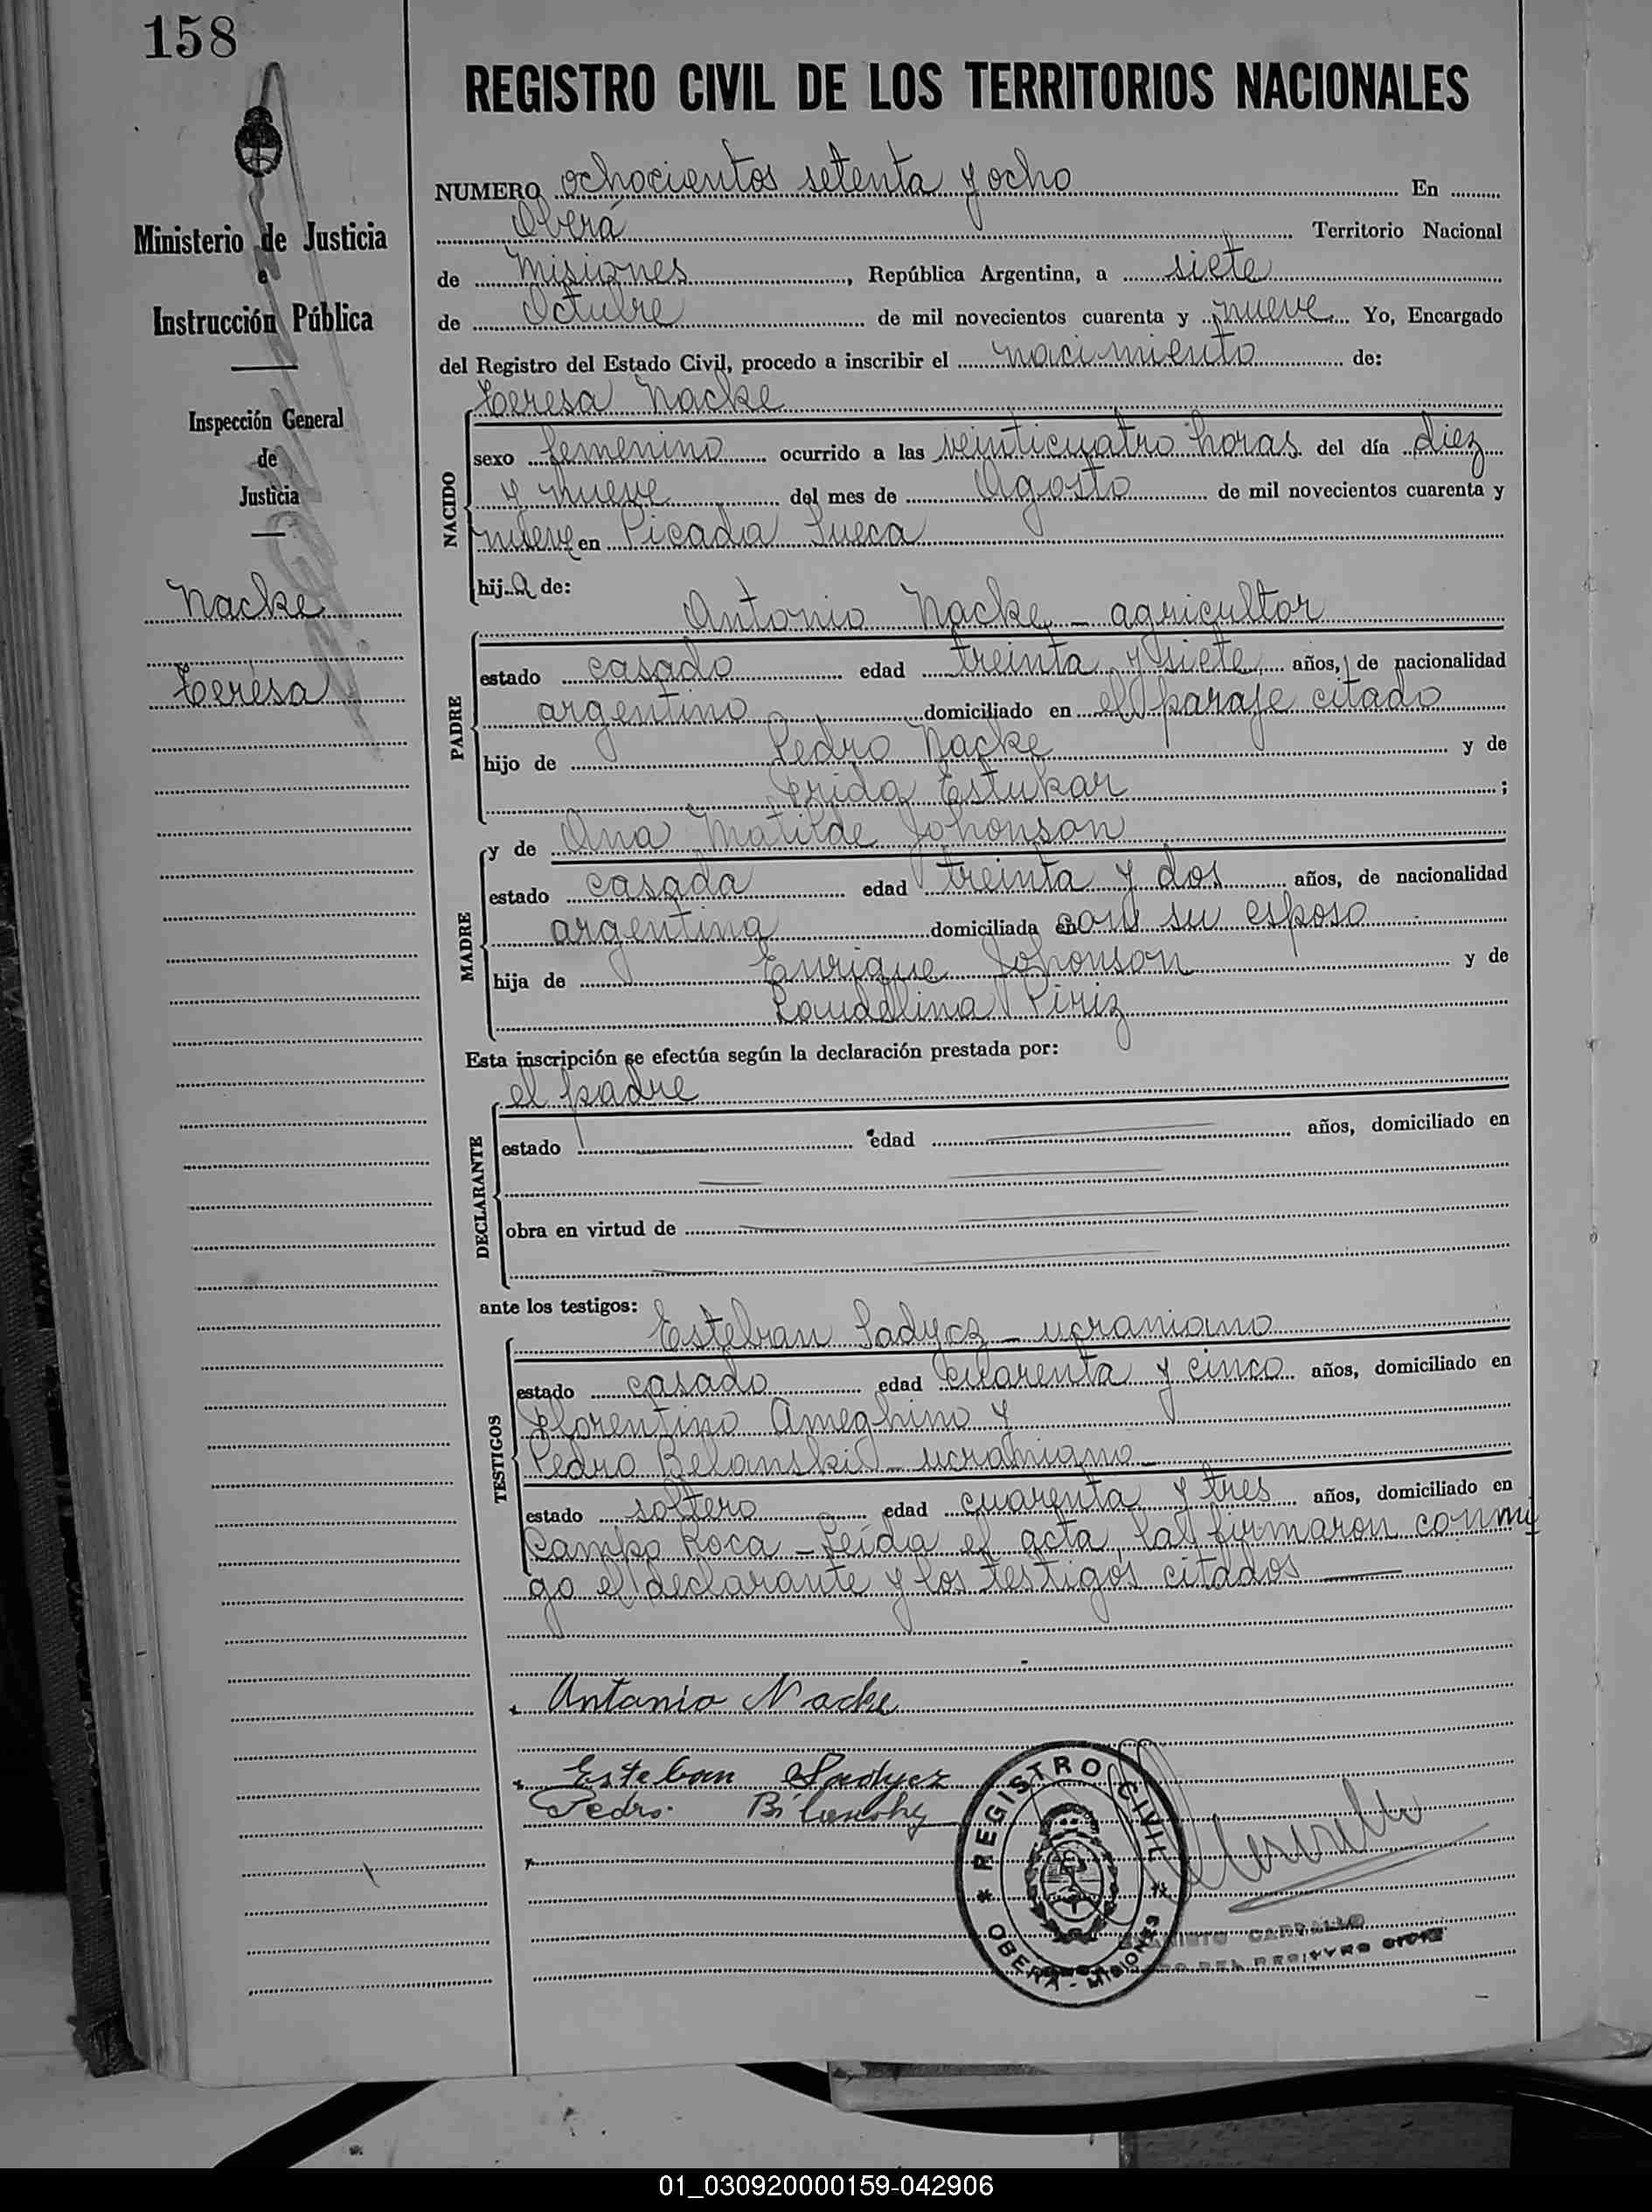 158
REGISTRO CIVIL DE LOS TERRITORIOS NACIONALES
Ministerio de Justicia
e
Instrucción Pública
Inspección General
de
Justicia
Nacke
Teresa
NUMERO ochocientos setenta y ocho En
Oberá Territorio Nacional
de Misiones, República Argentina, a siete
de Octubre de mil novecientos cuarenta y nueve Yo, Encargado
del Registro del Estado Civil, procedo a inscribir el nacimiento de:
Teresa Nacke
NACIDO
sexo femenino ocurrido a las veinticuatro horas del día diez
y nueve del mes de Agosto de mil novecientos cuarenta y
nueve en Picada Sueca
hija de:
PADRE
Antonio Nacke - agricultor
estado casado edad treinta y siete años, de nacionalidad
argentino domiciliado en el paraje citado
hijo de Pedro Nacke y de
Frida Estukar ;
MADRE
y de Ana Matilde Johonson
estado casada edad treinta y dos años, de nacionalidad
argentina domiciliada con su esposo
hija de Enrique Johonson y de
Laudelina Piriz
Esta inscripción se efectúa según la declaración prestada por:
el padre
DECLARANTE
estado edad años, domiciliado en
obra en virtud de
ante los testigos:
TESTIGOS
Esteban Sadycz - ucraniano
estado casado edad cuarenta y cinco años, domiciliado en
Florentino Ameghino y
Pedro Belanski - ucraniano -
estado soltero edad cuarenta y tres años, domiciliado en
Campo Roca - Leída el acta, la firmaron conmi
go el declarante y los testigos citados
Antonio Nacke
Esteban Sadycz
Pedro
REGISTRO CIVIL
OBERA - MISIONES
CARBALLO
DEL REGISTRO CIVIL
01_030920000159-042906